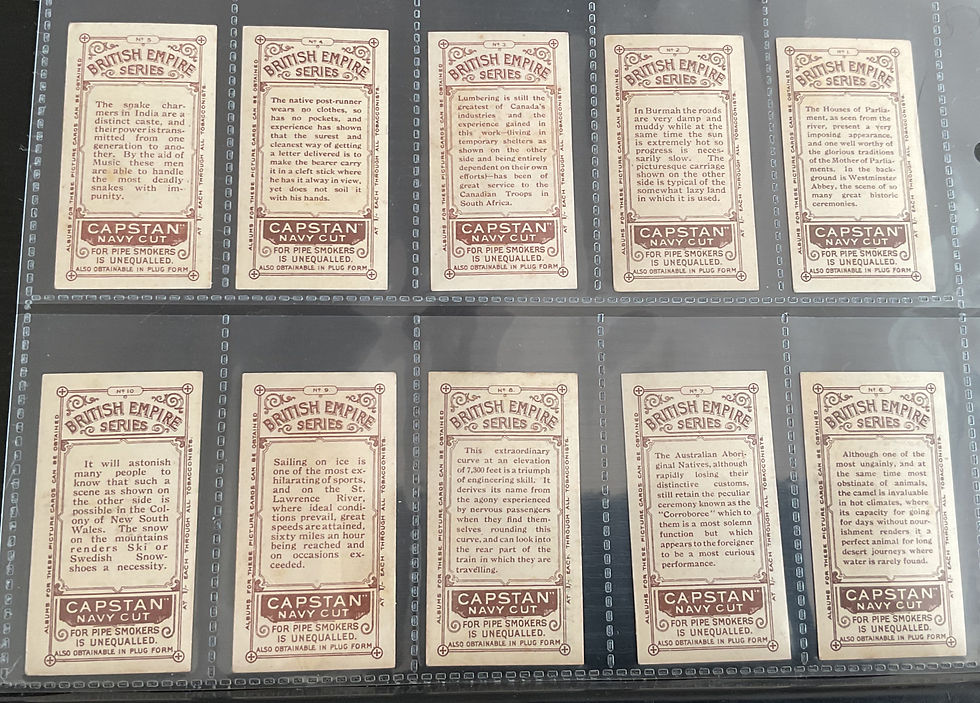 Nº 5
BRITISH EMPIRE
SERIES
The snake char-
mers in India are a
distinct caste, and
their power is trans-
mitted from one
generation to ano-
ther. By the aid of
Music these men
are able to handle
the most deadly
snakes with im-
punity.
ALBUMS FOR THESE PICTURE CARDS CAN BE OBTAINED
AT 1/- EACH THROUGH ALL TOBACCONISTS.
CAPSTAN"
NAVY CUT
FOR PIPE SMOKERS
IS UNEQUALLED.
ALSO OBTAINABLE IN PLUG FORM
Nº 4
BRITISH EMPIRE
SERIES
The native post-runner
wears no clothes, so
has no pockets, and
experience has shown
that the surest and
cleanest way of getting
a letter delivered is to
make the bearer carry
it in a cleft stick where
he has it alway in view,
yet does not soil it
with his hands.
ALBUMS FOR THESE PICTURE CARDS CAN BE OBTAINED
AT 1/- EACH THROUGH ALL TOBACCONISTS.
CAPSTAN"
NAVY CUT
FOR PIPE SMOKERS
IS UNEQUALLED.
ALSO OBTAINABLE IN PLUG FORM
Nº 3
BRITISH EMPIRE
SERIES
Lumbering is still the
greatest of Canada's
industries and the
experience gained in
this work—(living in
temporary shelters as
shown on the other
side and being entirely
dependent on their own
efforts)—has been of
great service to the
Canadian Troops in
South Africa.
ALBUMS FOR THESE PICTURE CARDS CAN BE OBTAINED
AT 1/- EACH THROUGH ALL TOBACCONISTS.
CAPSTAN"
NAVY CUT
FOR PIPE SMOKERS
IS UNEQUALLED.
ALSO OBTAINABLE IN PLUG FORM
Nº 2
BRITISH EMPIRE
SERIES
In Burmah the roads
are very damp and
muddy while at the
same time the sun
is extremely hot so
progress is neces-
sarily slow. The
picturesque carriage
shown on the other
side is typical of the
somewhat lazy land
in which it is used.
ALBUMS FOR THESE PICTURE CARDS CAN BE OBTAINED
AT 1/- EACH THROUGH ALL TOBACCONISTS.
CAPSTAN"
NAVY CUT
FOR PIPE SMOKERS
IS UNEQUALLED.
ALSO OBTAINABLE IN PLUG FORM
Nº 1
BRITISH EMPIRE
SERIES
The Houses of Parlia-
ment, as seen from the
river, present a very
imposing appearance,
and one well worthy of
the glorious traditions
of the Mother of Parlia-
ments. In the back-
ground is Westminster
Abbey, the scene of so
many great historic
ceremonies.
ALBUMS FOR THESE PICTURE CARDS CAN BE OBTAINED
AT 1/- EACH THROUGH ALL TOBACCONISTS.
CAPSTAN"
NAVY CUT
FOR PIPE SMOKERS
IS UNEQUALLED.
ALSO OBTAINABLE IN PLUG FORM
Nº 10
BRITISH EMPIRE
SERIES
It will astonish
many people to
know that such a
scene as shown on
the other side is
possible in the Col-
ony of New South
Wales. The snow
on the mountains
renders Ski or
Swedish Snow-
shoes a necessity.
ALBUMS FOR THESE PICTURE CARDS CAN BE OBTAINED
AT 1/- EACH THROUGH ALL TOBACCONISTS.
CAPSTAN"
NAVY CUT
FOR PIPE SMOKERS
IS UNEQUALLED.
ALSO OBTAINABLE IN PLUG FORM
Nº 9
BRITISH EMPIRE
SERIES
Sailing on ice is
one of the most ex-
hilarating of sports,
and on the St.
Lawrence River,
where ideal condi-
tions prevail, great
speeds are attained,
sixty miles an hour
being reached and
on occasions ex-
ceeded.
ALBUMS FOR THESE PICTURE CARDS CAN BE OBTAINED
AT 1/- EACH THROUGH ALL TOBACCONISTS.
CAPSTAN"
NAVY CUT
FOR PIPE SMOKERS
IS UNEQUALLED.
ALSO OBTAINABLE IN PLUG FORM
Nº 8.
BRITISH EMPIRE
SERIES
This extraordinary
curve at an elevation
of 7,300 feet is a triumph
of engineering skill. It
derives its name from
the agony experienced
by nervous passengers
when they find them-
selves rounding this
curve, and can look into
the rear part of the
train in which they are
travelling.
ALBUMS FOR THESE PICTURE CARDS CAN BE OBTAINED
AT 1/- EACH THROUGH ALL TOBACCONISTS.
CAPSTAN"
NAVY CUT
FOR PIPE SMOKERS
IS UNEQUALLED.
ALSO OBTAINABLE IN PLUG FORM
Nº 7
BRITISH EMPIRE
SERIES
The Australian Abori-
ginal Natives, although
rapidly losing their
distinctive customs,
still retain the peculiar
ceremony known as the
"Corroboree" which to
them is a most solemn
function but which
appears to the foreigner
to be a most curious
performance.
ALBUMS FOR THESE PICTURE CARDS CAN BE OBTAINED
AT 1/- EACH THROUGH ALL TOBACCONISTS.
CAPSTAN"
NAVY CUT
FOR PIPE SMOKERS
IS UNEQUALLED.
ALSO OBTAINABLE IN PLUG FORM
Nº 6.
BRITISH EMPIRE
SERIES
Although one of the
most ungainly, and at
the same time most
obstinate of animals,
the camel is invaluable
in hot climates, where
its capacity for going
for days without nour-
ishment renders it a
perfect animal for long
desert journeys where
water is rarely found.
ALBUMS FOR THESE PICTURE CARDS CAN BE OBTAINED
AT 1/- EACH THROUGH ALL TOBACCONISTS.
CAPSTAN"
NAVY CUT
FOR PIPE SMOKERS
IS UNEQUALLED.
ALSO OBTAINABLE IN PLUG FORM